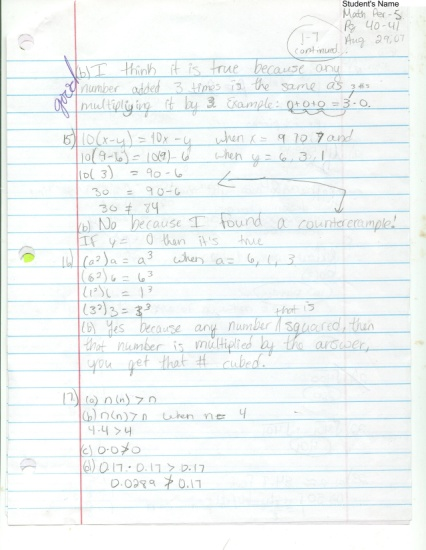 Student's Name
Math Per-5
Pg 40-41
Aug 29,07
1-7
continued...
good
(b) I think it is true because any
number added 3 times is the same as
multiplying it by 3 Example: 0+0+0 = 3·0.
15) 10(x-y) = 10x - y when x = 9 10 7 and
10(9-6) = 10(9)- 6 when y = 6, 3, 1
10( 3) = 90-6
30 = 90-6
30 ≠ 84
(b) No because I found a counterexample!
If y = 0 then it's true
16) (a²)a = a³ when a = 6, 1, 3
(6²)6 = 6³
(1²)1 = 1³
(3²)3 = 3³
that is
(b) Yes because any number squared, then
that number is multiplied by the answer,
you get that # cubed.
17) (a) n(n) > n
(b) n(n) > n when n = 4
4·4 > 4
(c) 0·0 ≯ 0
(d) 0.17 · 0.17 > 0.17
0.0289 ≯ 0.17